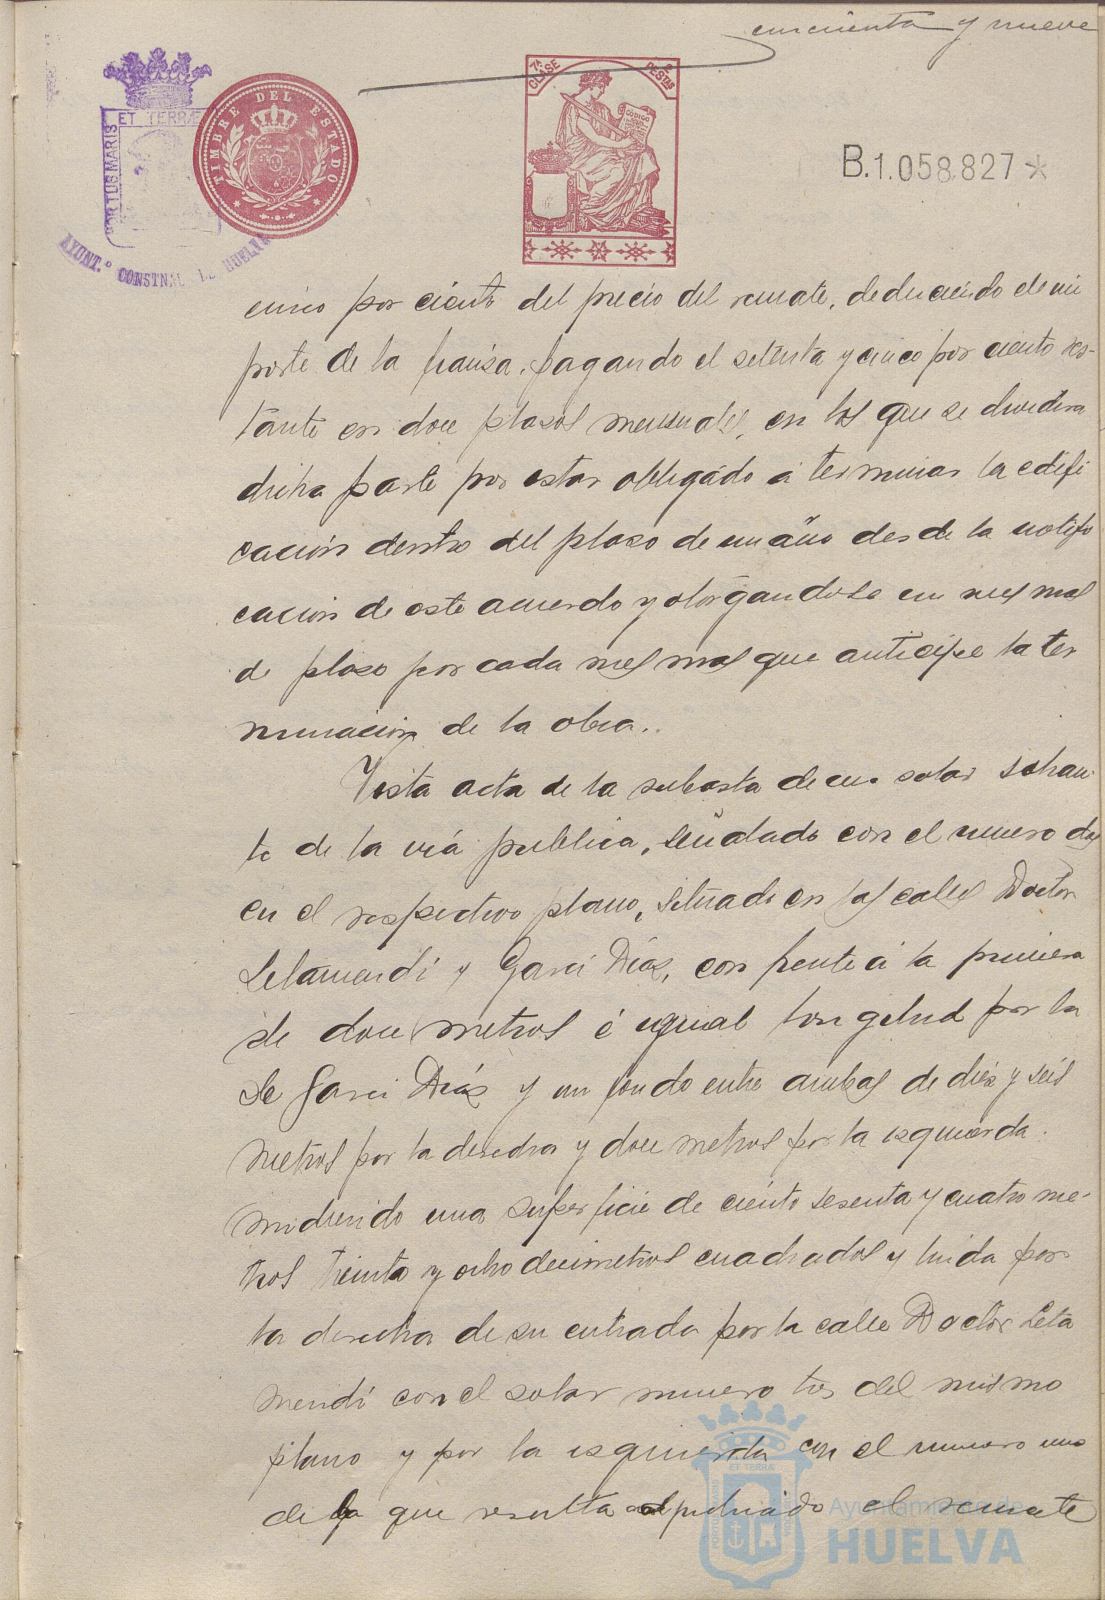 cincuenta y nueve
ET TERRÆ
PORTUS MARIS
AYUNT.º CONSTNAL DE HUELVA
TIMBRE DEL ESTADO
7ª CLASE
2 PESTAS
CODIGO
B.1.058.827*
cinco por ciento del precio del remate, deduciendo el im
porte de la fianza, pagando el setenta y cinco por ciento res-
tante en doce plazos mensuales, en los que se dividirá
dicha parte por estar obligado á terminar la edifi
cación dentro del plazo de un año desde la notifi
cacion de este acuerdo y otorgandose un mes mas
de plazo por cada mes mas que anticipe la ter
minacion de la obra.
Vista acta de la subasta de un solar sobran
te de la via publica, señalado con el numero dos
en el respectivo plano, situado en las calles Doctor
Letamendi y Garci Diaz, con frente á la primera
de doce metros é igual longitud por la
de Garci Diaz y un fondo entre ambas de diez y seis
metros por la derecha y doce metros por la izquierda.
midiendo una superficie de ciento sesenta y cuatro me-
tros treinta y ocho decimetros cuadrados y linda por
la derecha de su entrada por la calle Doctor Leta
mendi con el solar numero tres del mismo
plano y por la izquierda con el numero uno
de la que resulta adjudicado el remate
ET TERRÆ
Ayuntamiento de
HUELVA